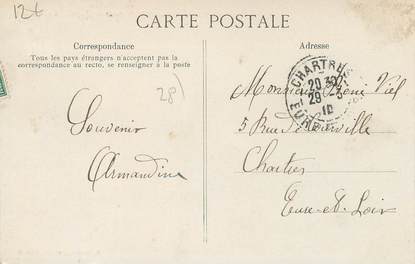 12€
CARTE POSTALE
Correspondance
Tous les pays étrangers n'acceptent pas la
correspondance au recto, se renseigner à la poste
28)
Souvenir
Armandine
Adresse
CHARTRES
20 30
29 -3
10
EURE
Monsieur Viel
5 Rue
Chartres
Eure-et-Loir